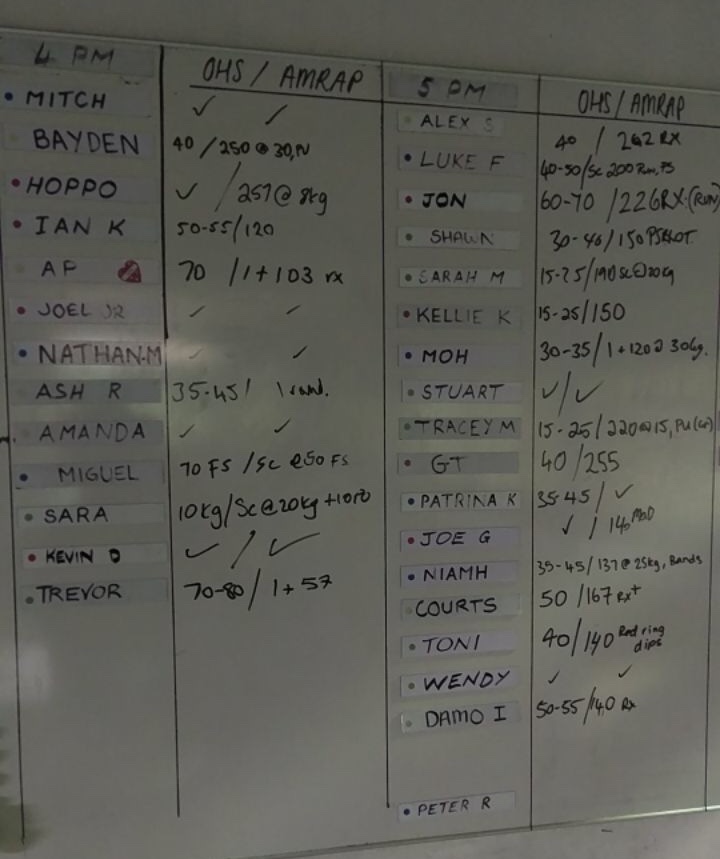 4 PM OHS / AMRAP
MITCH ✓ ✓
BAYDEN 40 / 250 @ 30,
HOPPO ✓ / 257 @ 8kg
IAN K 50-55/120
AP 70 / 1 + 103 rx
JOEL JR ✓ ✓
NATHAN.M ✓ ✓
ASH R 35-45 / 1
AMANDA ✓ ✓
MIGUEL 70 FS / Sc @50 FS
SARA 10kg/Sc@20kg
KEVIN D ✓ / ✓
TREVOR 70-80 / 1 + 57
5 PM OHS/AMRAP
ALEX S 40 / 262 RX
LUKE F 40-50/Sc 200
JON 60-70 / 226RX (RUN)
SHAWN 30-40/150
SARAH M 15-25/190 Sc@20kg
KELLIE K 15-25/150
MOH 30-35/ 1 + 120 @ 30kg.
STUART ✓/✓
TRACEY M 15-25/220@15,
GT 40/255
PATRINA K 35-45/ ✓
JOE G ✓ / 140 MOD
NIAMH 35-45/137@25kg, Bands
COURTS 50 /167 RX+
TONI 40/140 Red ring dips
WENDY ✓ ✓
DAMO I 50-55/140 Rx
PETER R